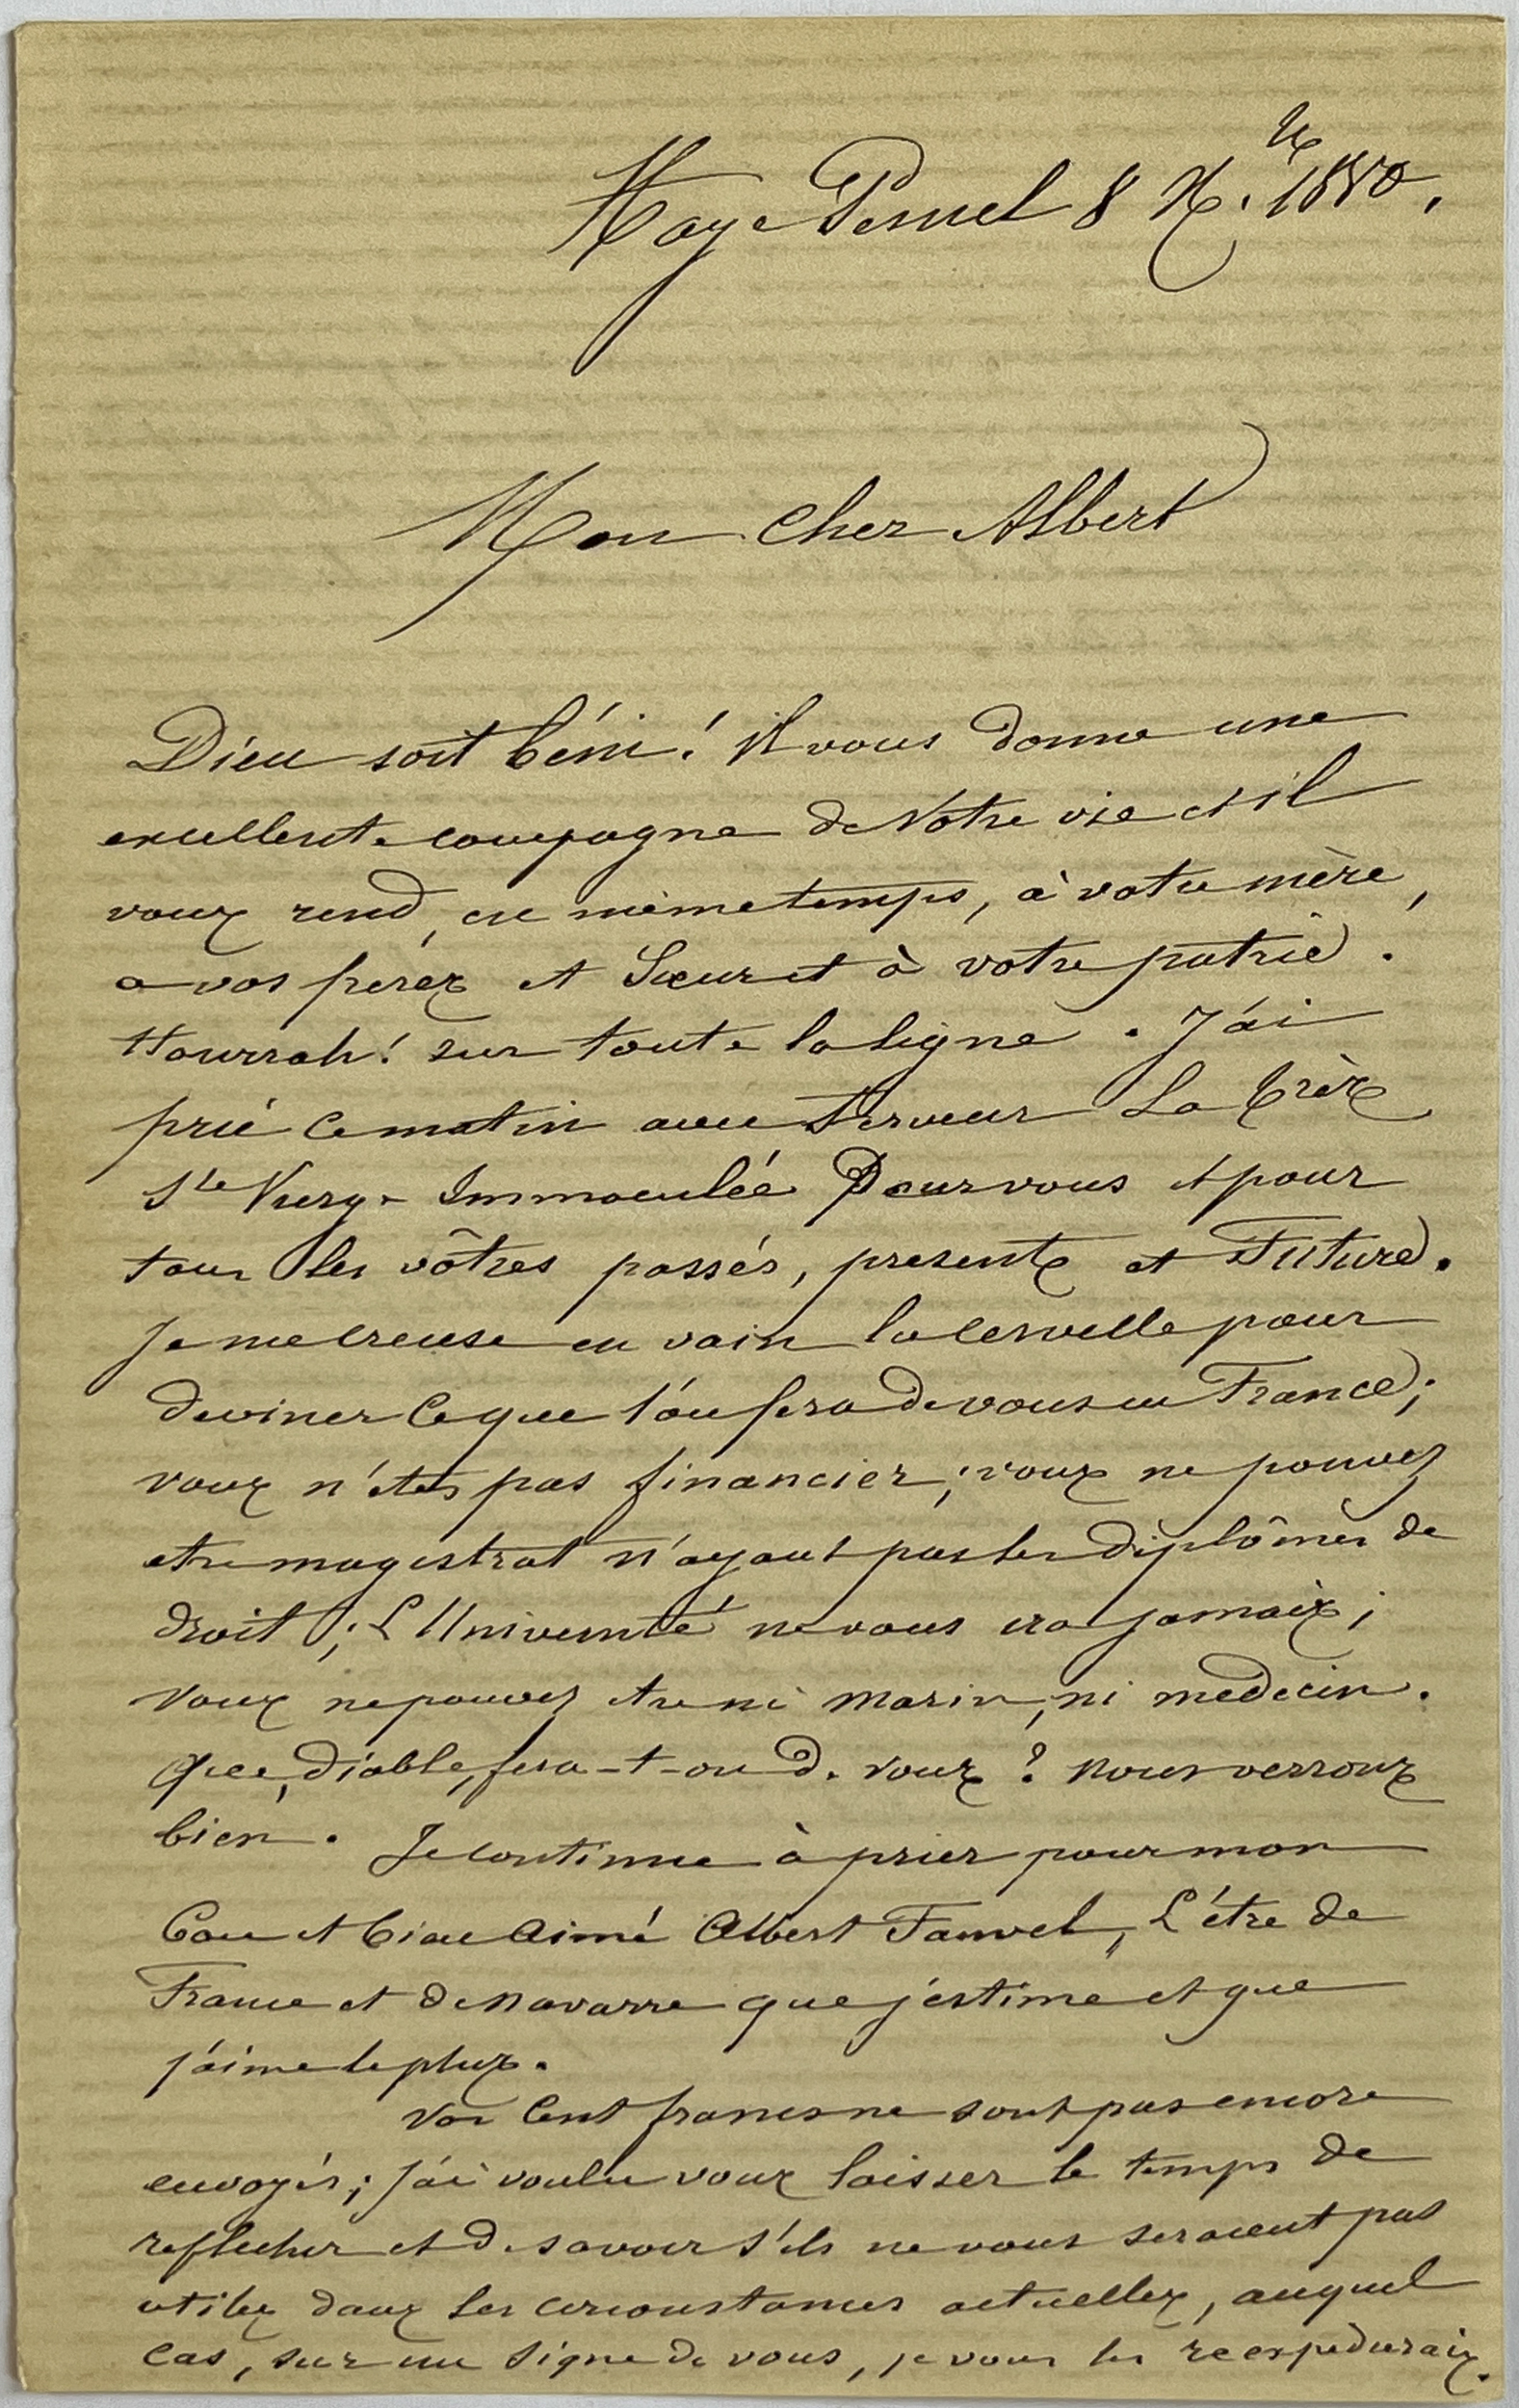 Haye Pesnel 8 X.re 1880.
Mon Cher Albert
Dieu soit béni! il vous donne une
excellente compagne de Votre vie et il
vous rend, en même temps, à votre mère,
a vos freres et Sœur et à votre patrie.
Hourrah! sur toute la ligne. J'ai
prié Ce matin avec ferveur La très
Ste Vierge Immaculée Pour vous et pour
tous les vôtres passés, presents et Futurs.
Je me creuse en vain la cervelle pour
deviner Ce que l'on fera de vous en France;
vous n'etes pas financier; vous ne pouvez
etre magistrat n'ayant pas les diplômes de
droit; L'Université ne vous ira jamais;
vous ne pouvez etre ni marin, ni medecin.
Que, diable, fera-t-on de vous? nous verrons
bien. Je continue à prier pour mon
bon et bien aimé Albert Fauvel, L'être de
France et de navarre que j'estime et que
j'aime le plus.
Vos Cent francs ne sont pas encore
envoyés; j'ai voulu vous laisser le temps de
reflechir et de savoir s'ils ne vous seraient pas
utiles dans les circonstances actuelles, auquel
cas, sur un signe de vous, je vous les reexpedierais.